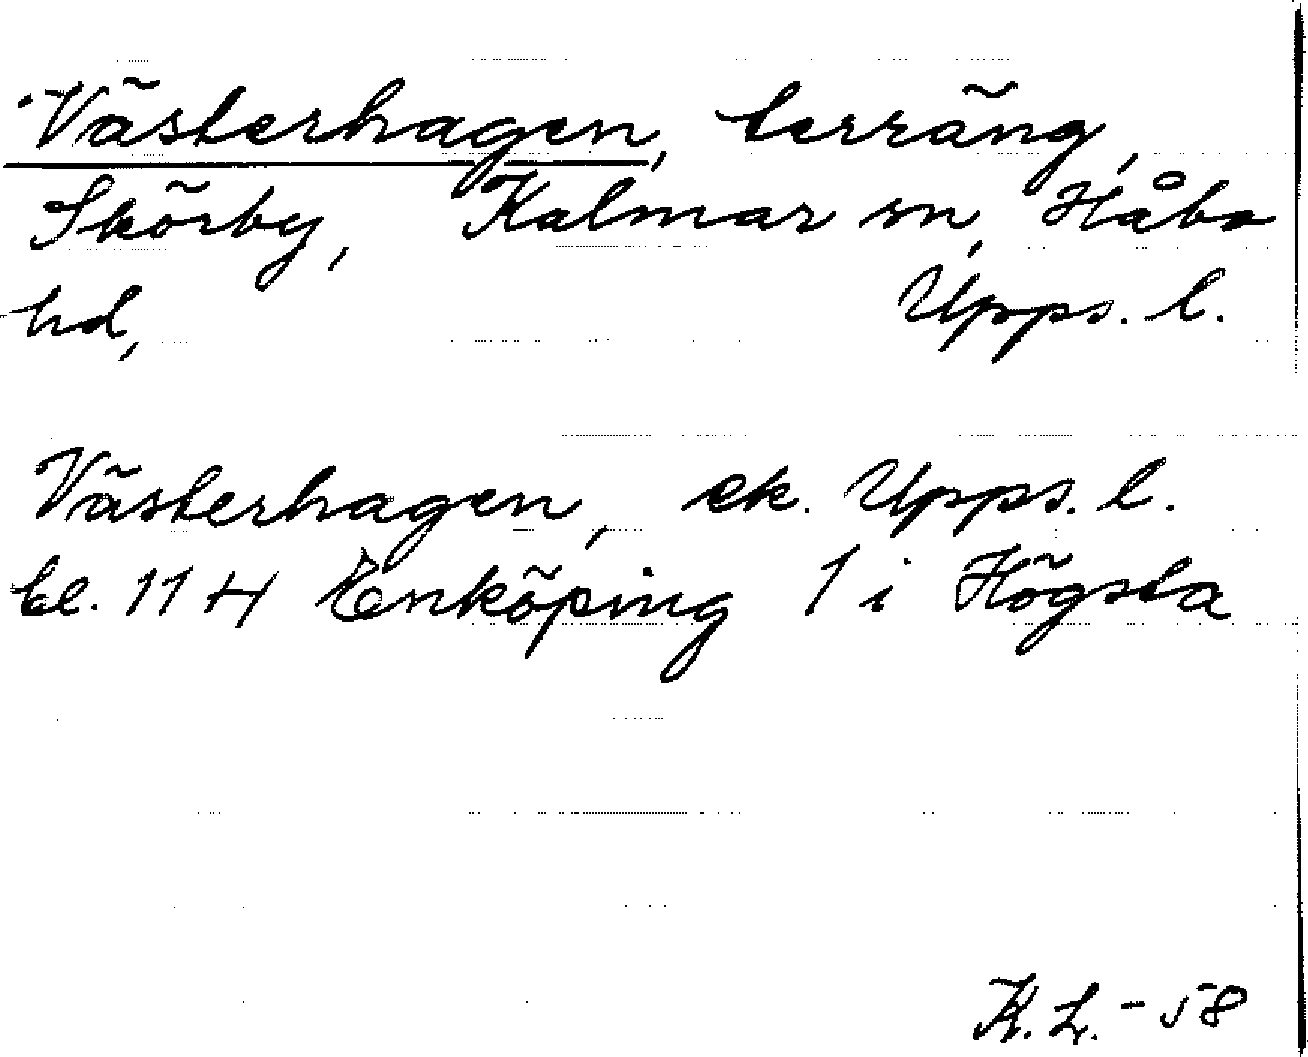 Västerhagen, terräng,
Skörby, Kalmar sn, Håbo
hd, Upps. l.
Västerhagen, ek. Upps. l.
bl. 114 Enköping 1 i Högsta
K. L. -58